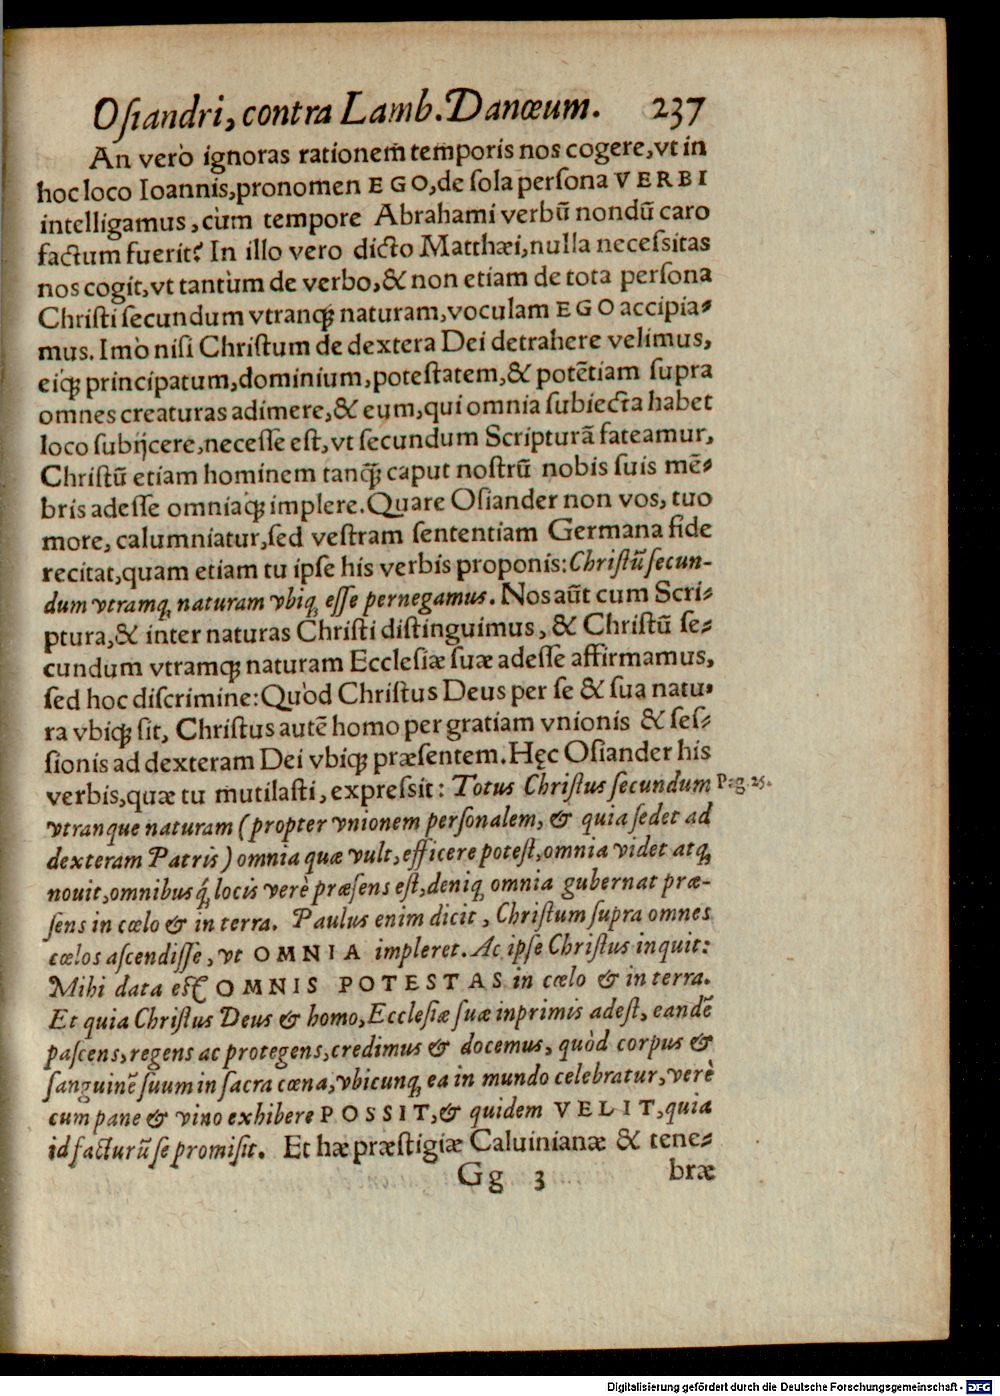 Oſiandri, contra Lamb. Danœum. 237
An verò ignoras rationem̃ temporis nos cogere, vt in
hoc loco Ioannis, pronomen EGO, de ſola perſona VERBI
intelligamus, cùm tempore Abrahami verbũ nondũ caro
factum fuerit? In illo vero dicto Matthæi, nulla neceſsitas
nos cogit, vt tantùm de verbo, & non etiam de tota perſona
Chriſti ſecundum vtranq; naturam, voculam EGO accipia-
mus. Imò niſi Chriſtum de dextera Dei detrahere velimus,
eiq́; principatum, dominium, poteſtatem, & potẽtiam ſupra
omnes creaturas adimere, & eum, qui omnia ſubiecta habet
loco ſubijcere, neceſſe eſt, vt ſecundum Scripturã fateamur,
Chriſtũ etiam hominem tanq̃; caput noſtrũ nobis ſuis mẽ-
bris adeſſe omniaq́; implere. Quare Oſiander non vos, tuo
more, calumniatur, ſed veſtram ſententiam Germana fide
recitat, quam etiam tu ipſe his verbis proponis: Chriſtũ ſecun-
dum vtramq; naturam vbiq; eſſe pernegamus. Nos aũt cum Scri-
ptura, & inter naturas Chriſti diſtinguimus, & Chriſtũ ſe-
cundum vtramq; naturam Eccleſiæ ſuæ adeſſe affirmamus,
ſed hoc diſcrimine: Quòd Chriſtus Deus per ſe & ſua natu-
ra vbiq; ſit, Chriſtus autẽ homo per gratiam vnionis & ſeſ-
ſionis ad dexteram Dei vbiq; præſentem. Hęc Oſiander his
verbis, quæ tu mutilaſti, expreſsit: Totus Chriſtus ſecundum
Pag. 25.
vtranque naturam (propter vnionem perſonalem, & quia ſedet ad
dexteram Patris) omnia quæ vult, efficere poteſt, omnia videt atq;
nouit, omnibus q́; locis verè præſens eſt, deniq; omnia gubernat præ-
ſens in cœlo & in terra. Paulus enim dicit, Chriſtum ſupra omnes
cœlos aſcendiſſe, vt OMNIA impleret. Ac ipſe Chriſtus inquit:
Mihi data eſt OMNIS POTESTAS in cœlo & in terra.
Et quia Chriſtus Deus & homo, Eccleſiæ ſuæ inprimis adeſt, eandẽ
paſcens, regens ac protegens, credimus & docemus, quòd corpus &
ſanguinẽ ſuum in ſacra cœna, vbicunq; ea in mundo celebratur, verè
cum pane & vino exhibere POSSIT, & quidem VELIT, quia
id facturũ ſe promiſit. Et hæ præſtigiæ Caluinianæ & tene-
Gg 3 bræ
Digitalisierung gefördert durch die Deutsche Forschungsgemeinschaft - DFG